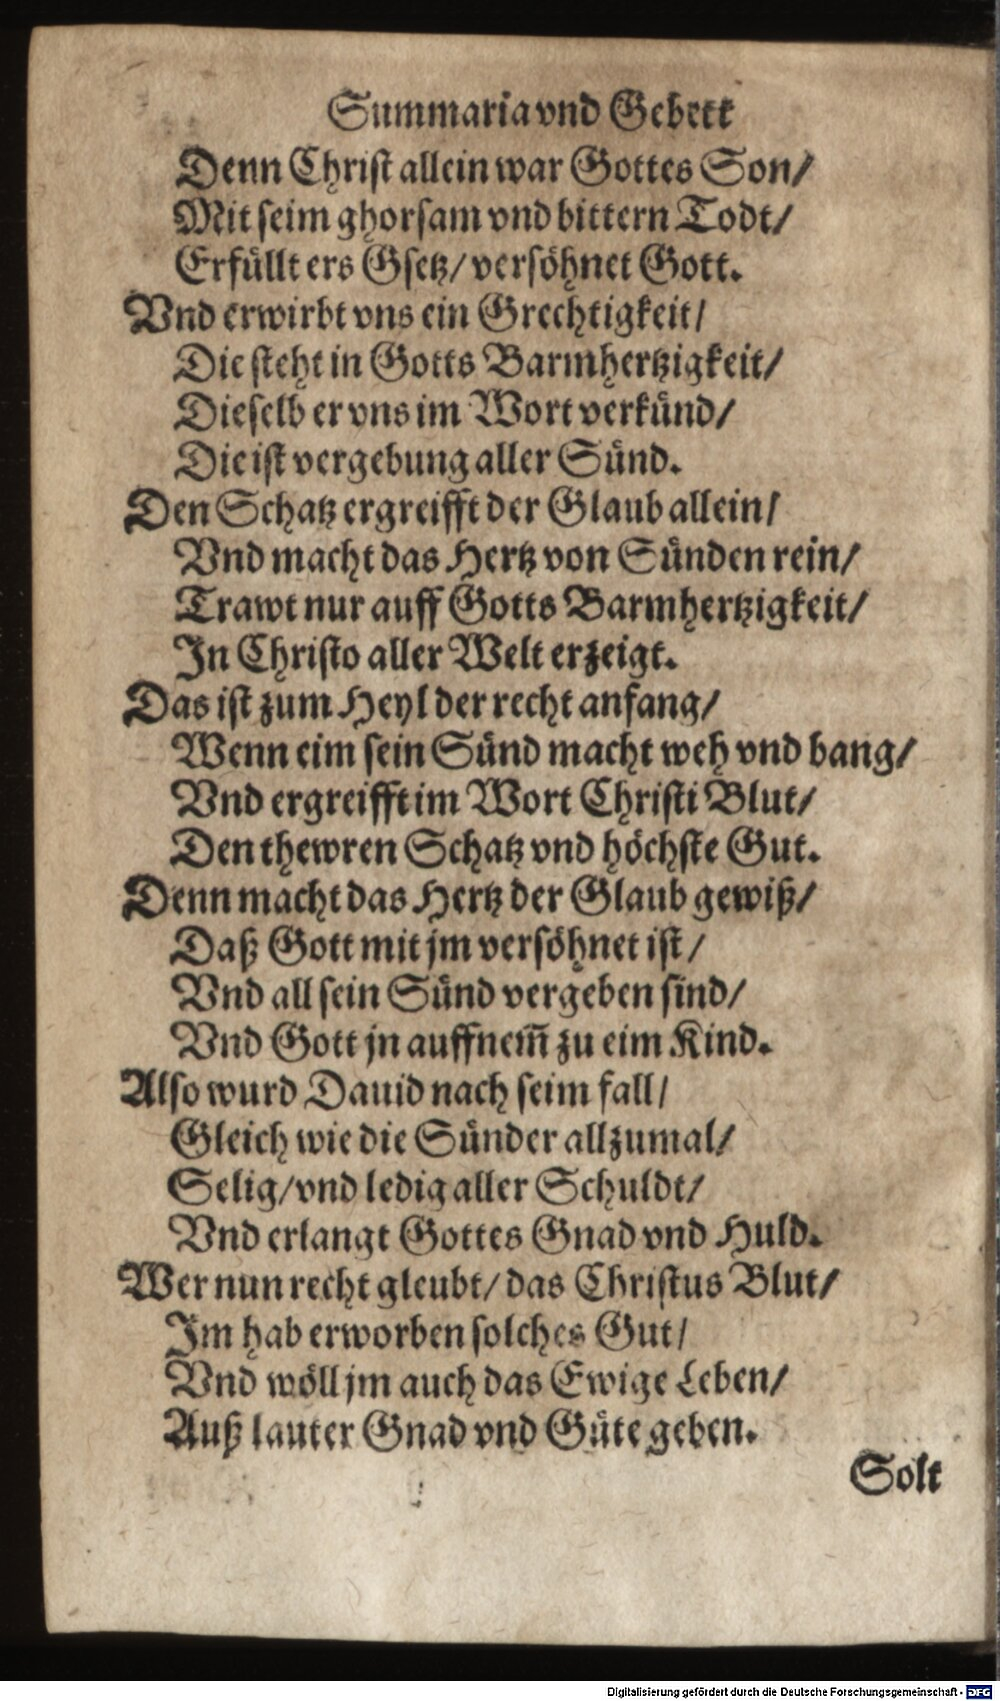 Summaria vnd Gebett
Denn Christ allein war Gottes Son/
Mit seim ghorsam vnd bittern Todt/
Erfüllt ers Gsetz/ versöhnet Gott.
Vnd erwirbt vns ein Grechtigkeit/
Die steht in Gotts Barmhertzigkeit/
Dieselb er vns im Wort verkünd/
Die ist vergebung aller Sünd.
Den Schatz ergreifft der Glaub allein/
Vnd macht das Hertz von Sünden rein/
Trawt nur auff Gotts Barmhertzigkeit/
In Christo aller Welt erzeigt.
Das ist zum Heyl der recht anfang/
Wenn eim sein Sünd macht weh vnd bang/
Vnd ergreifft im Wort Christi Blut/
Den thewren Schatz vnd höchste Gut.
Denn macht das Hertz der Glaub gewiß/
Daß Gott mit jm versöhnet ist/
Vnd all sein Sünd vergeben sind/
Vnd Gott jn auffnem̃ zu eim Kind.
Also wurd Dauid nach seim fall/
Gleich wie die Sünder allzumal/
Selig/ vnd ledig aller Schuldt/
Vnd erlangt Gottes Gnad vnd Huld.
Wer nun recht gleubt/ das Christus Blut/
Im hab erworben solches Gut/
Vnd wöll jm auch das Ewige Leben/
Auß lauter Gnad vnd Güte geben.
Solt
Digitalisierung gefördert durch die Deutsche Forschungsgemeinschaft - DFG